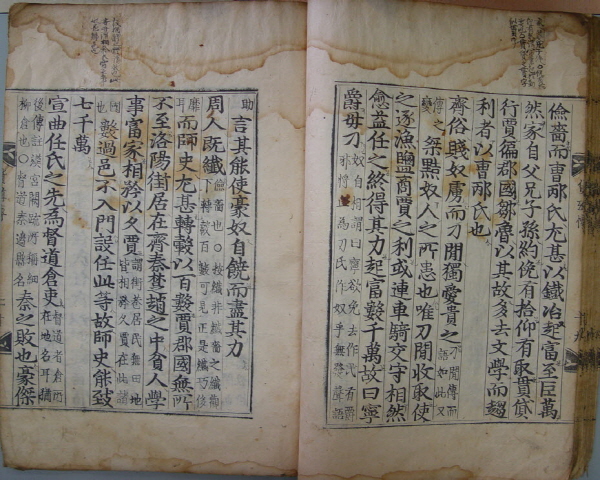 儉嗇而曹邴氏尤甚以鐵冶起富至巨萬
然家自父兄子孫約俛有拾仰有取貰貸
行賈徧郡國鄒魯以其故多去文學而趨
利者以曹邴氏也
齊俗賤奴虜而刀閒獨愛貴之
桀黠奴人之所患也唯刀閒收取使
之逐漁鹽商賈之利或連車騎交守相然
愈益任之終得其力起富數千萬故曰寧
爵毋刀奴自相謂曰寧欲免去作民有爵耶將止為刀氏作奴乎無發聲語
助言其能使豪奴自饒而盡其力
周人既纖儉嗇也
而師史尤甚轉轂以百數賈郡國無所
不至洛陽街居在齊秦楚趙之中貧人學
事富家相矜以久賈謂街巷居民無田地皆相矜久賈在此諸
國也數過邑不入門設任此等故師史能致
七千萬
宣曲任氏之先為督道倉吏
秦之敗也豪傑